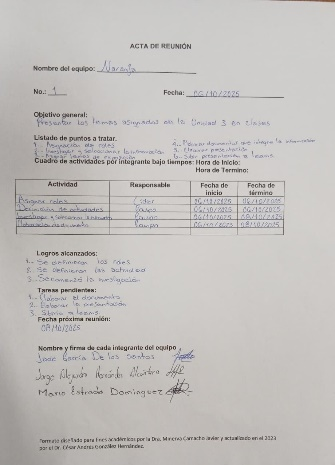 ACTA DE REUNIÓN
Nombre del equipo: Naranja
No.: 1 Fecha: 06/10/2025
Objetivo general:
Presentar los temas asignados de la Unidad 3 en clases
Listado de puntos a tratar.
1.- Asignación de roles
2.- Investigar y seleccionar la información
4.- Elaborar documento que integre la información
5.- Elaborar presentación
Cuadro de actividades por integrante bajo tiempos: Hora de Inicio:
Hora de Termino:
Actividad Responsable Fecha de inicio Fecha de término
Asignar roles Líder 06/10/2025 06/10/2025
Definición de actividades Equipo 06/10/2025 06/10/2025
Equipo 06/10/2025 06/10/2025
Equipo 06/10/2025 08/10/2025
Logros alcanzados:
1.- Se definieron los roles
2.- Se definieron las actividad
3.- la investigación
Tareas pendientes:
1.- Elaborar el documento
2.- Elaborar la presentación
3.- a teams
Fecha próxima reunión:
08/10/2025
Nombre y firma de cada integrante del equipo
José García De los Santos
Jorge Alejandro Hernández
Mario Estrada Domínguez
Formato diseñado para fines académicos por la Dra. Minerva Camacho Javier y actualizado en el 2023
por el Dr. César Andrés González Hernández.